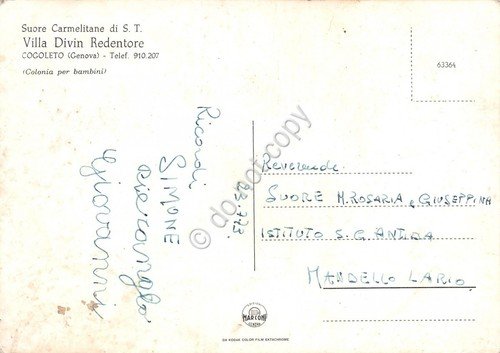 Suore Carmelitane di S. T.
Villa Divin Redentore
COGOLETO (Genova) - Telef. 910.207
(Colonia per bambini)
63364
Ricordi
22.7.73
SIMONE
Piercarlo
Giovanni
Reverende
SUORE M. ROSARIA e GIUSEPPINA
ISTITUTO S. G.
MANDELLO LARIO
MARCONI
GENOVA
DA KODAK COLOR FILM EKTACHROME
© do not copy